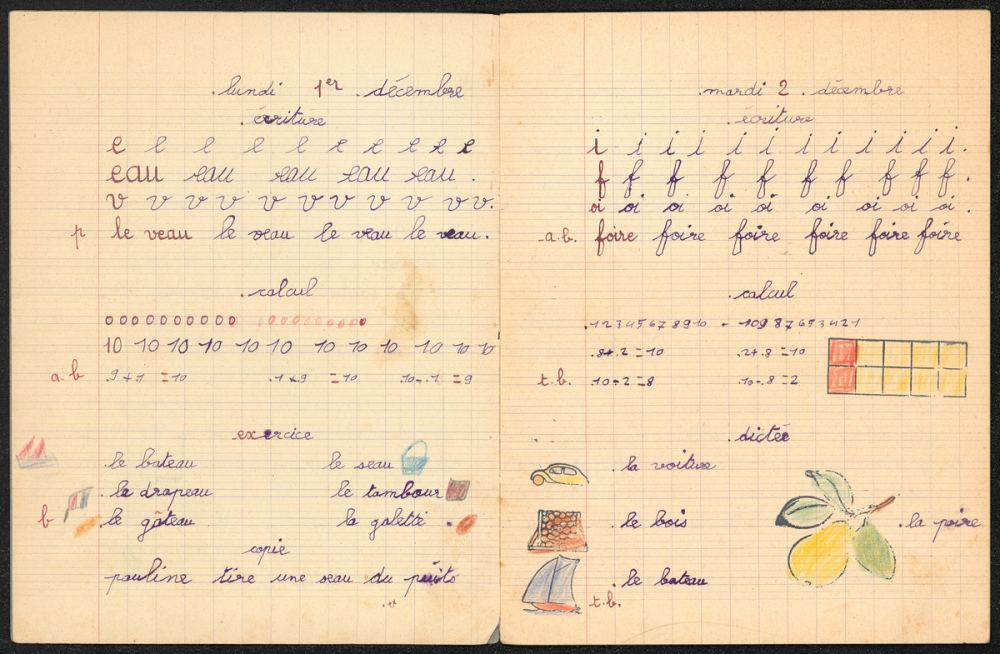 lundi 1er décembre
écriture
e e e e e e e e e e
eau eau eau eau eau.
v v v v v v v v v v v.
p le veau le veau le veau le veau.
calcul
0000000000 0000000000
10 10 10 10 10 10 10 10 10 10 10 10
a.b 9+1 =10 1+9 =10 10-1 =9
exercice
le bateau le seau
le drapeau le tambour
b le gâteau la galette
copie
pauline tire une seau du puits
mardi 2 décembre
écriture
i i i i i i i i i i i i.
f f f f f f f f f f.
oi oi oi oi oi oi oi oi oi.
a.b. foire foire foire foire foire foire
calcul
1 2 3 4 5 6 7 8 9 10 - 10 9 8 7 6 5 3 4 2 1
8+2=10 2+8=10
t.b. 10-2=8 10-8=2
dictée
la voiture
le bois la poire
le bateau
t.b.